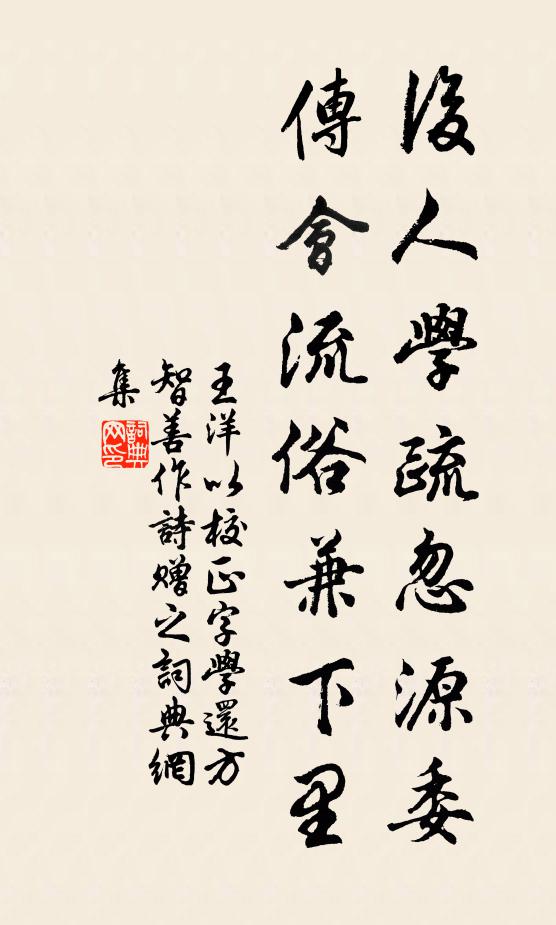 後人學疏忽源委
傅會流俗兼下里
王洋以校正字學還方
智善作詩贈之詞典網
集
詞典網印